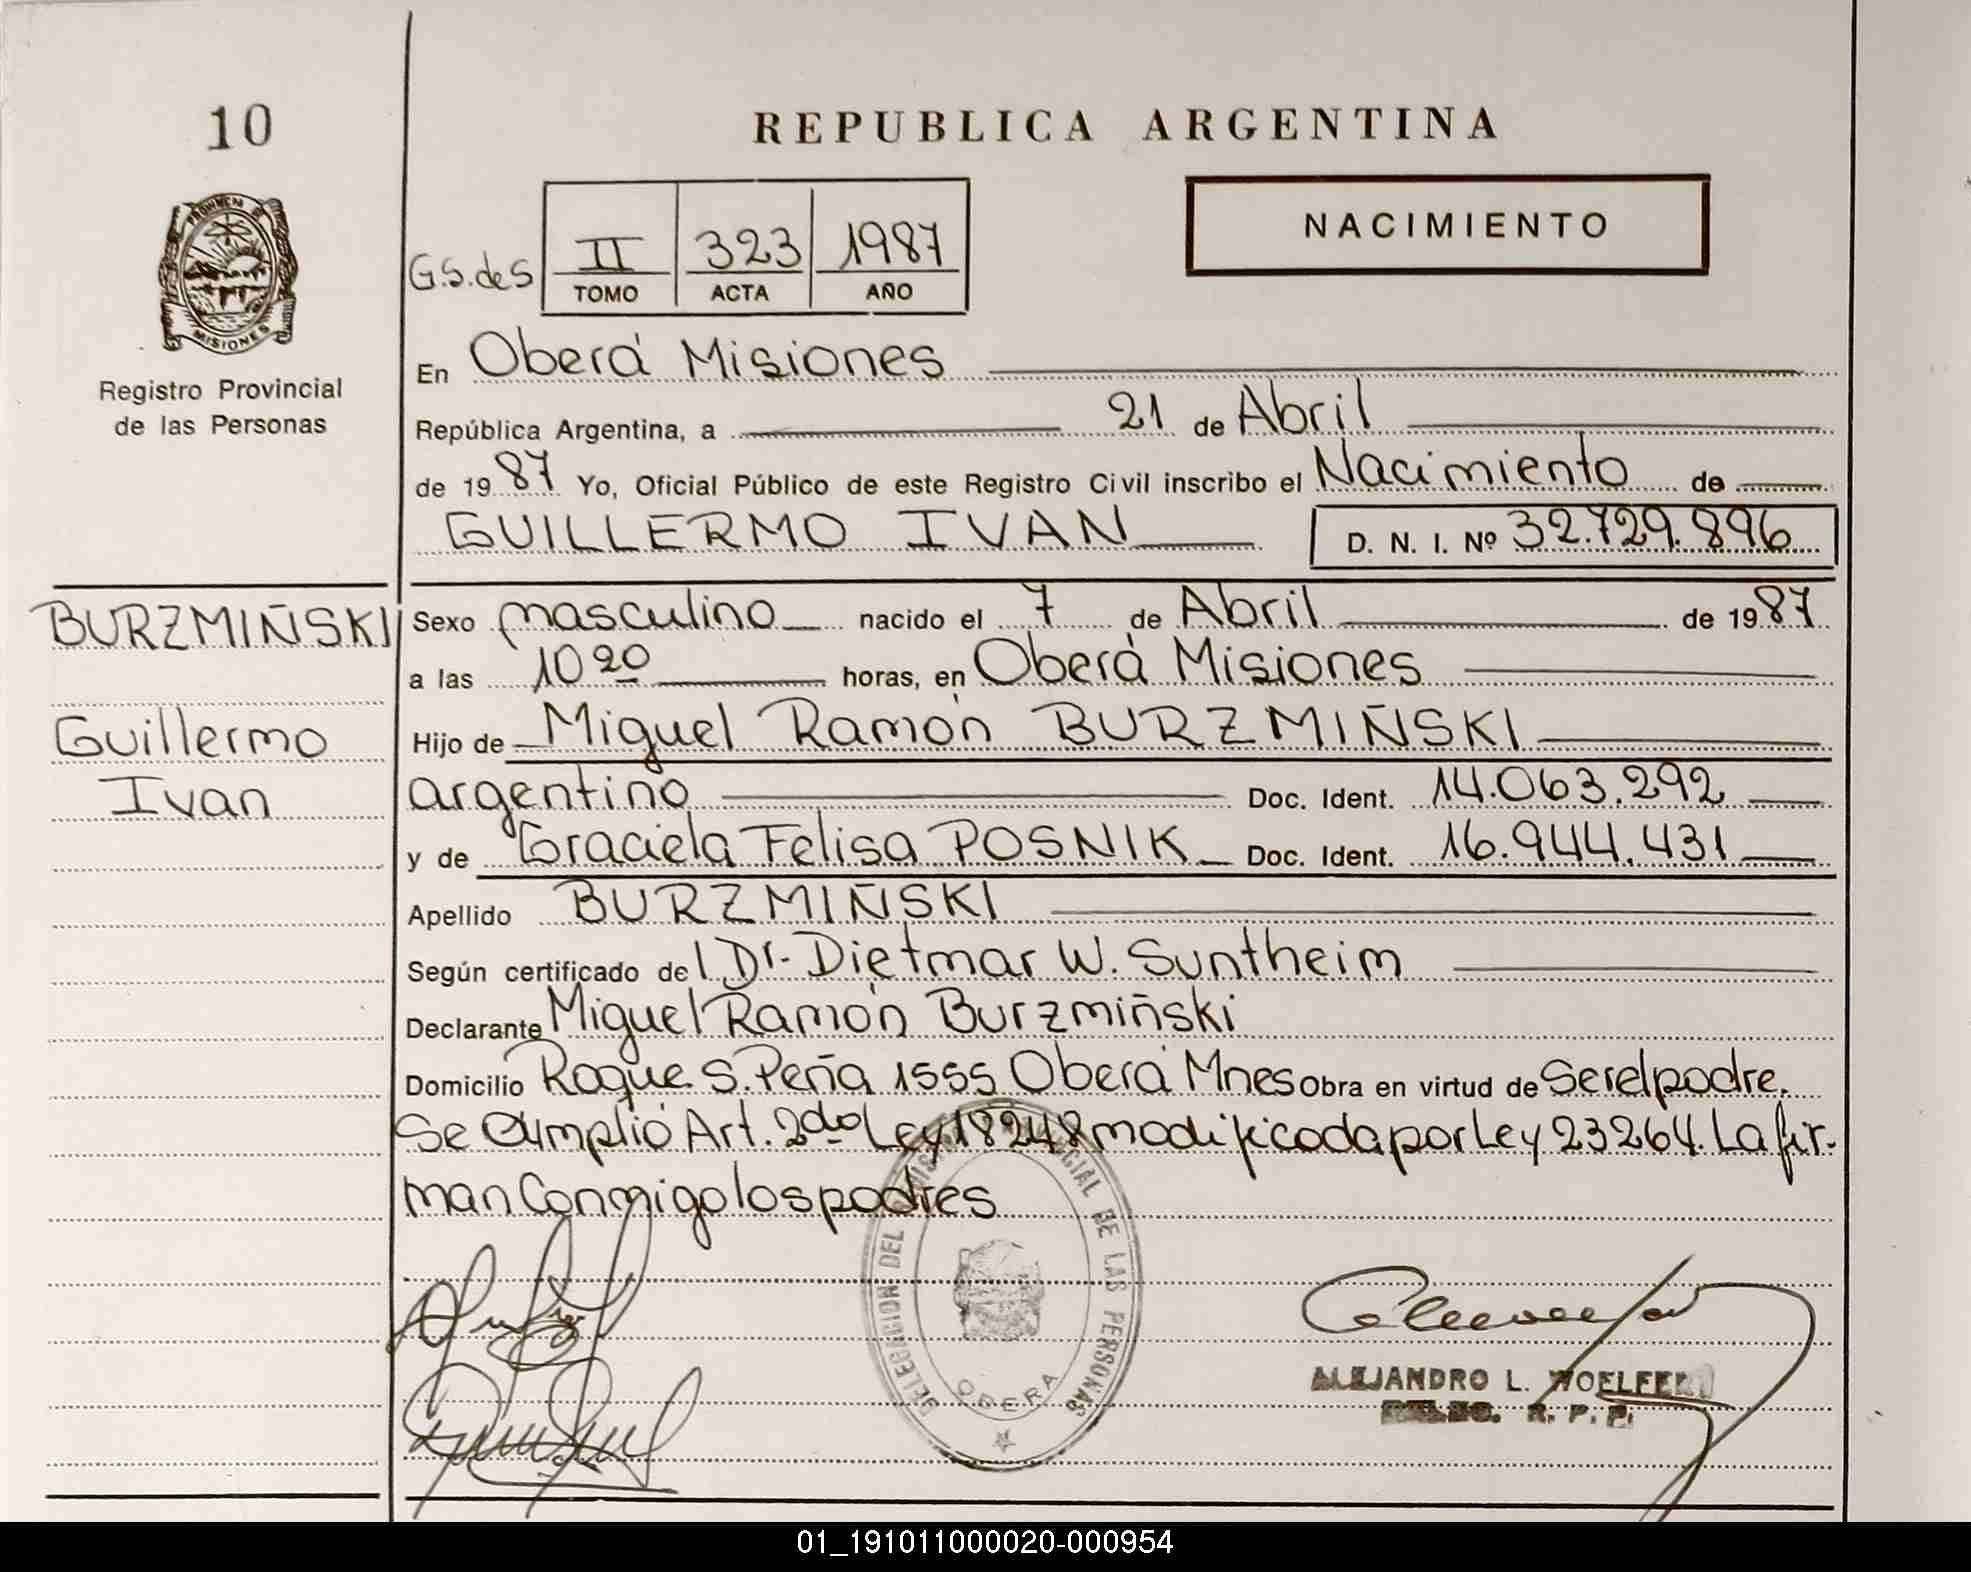 10
REPUBLICA ARGENTINA
PROVINCIA
MISIONES
Registro Provincial
de las Personas
G.S.des
II 323 1987
TOMO ACTA AÑO
NACIMIENTO
En Oberá Misiones
República Argentina, a 21 de Abril
de 1987 Yo, Oficial Público de este Registro Civil inscribo el Nacimiento de
GUILLERMO IVAN D. N. I. Nº 32.729.896
BURZMIÑSKI
Guillermo
Ivan
Sexo masculino nacido el 7 de Abril de 1987
a las 10 20 horas, en Oberá Misiones
Hijo de Miguel Ramón BURZMIÑSKI
argentino Doc. Ident. 14.063.292
y de Graciela Felisa POSNIK Doc. Ident. 16.944.431
Apellido BURZMIÑSKI
Según certificado del Dr. Dietmar W. Suntheim
Declarante Miguel Ramón Burzmiñski
Domicilio Roque S. Peña 1555 Oberá Mnes obra en virtud de ser el padre.
Se Cumplió Art. 2do Ley 18248 modificada por Ley 23264. La fir-
man Conmigo los padres
DELEGACION DEL REGISTRO PROVINCIAL DE LAS PERSONAS
OBERA
ALEJANDRO L. WOELFERT
DELEG. R. P. P.
01_191011000020-000954